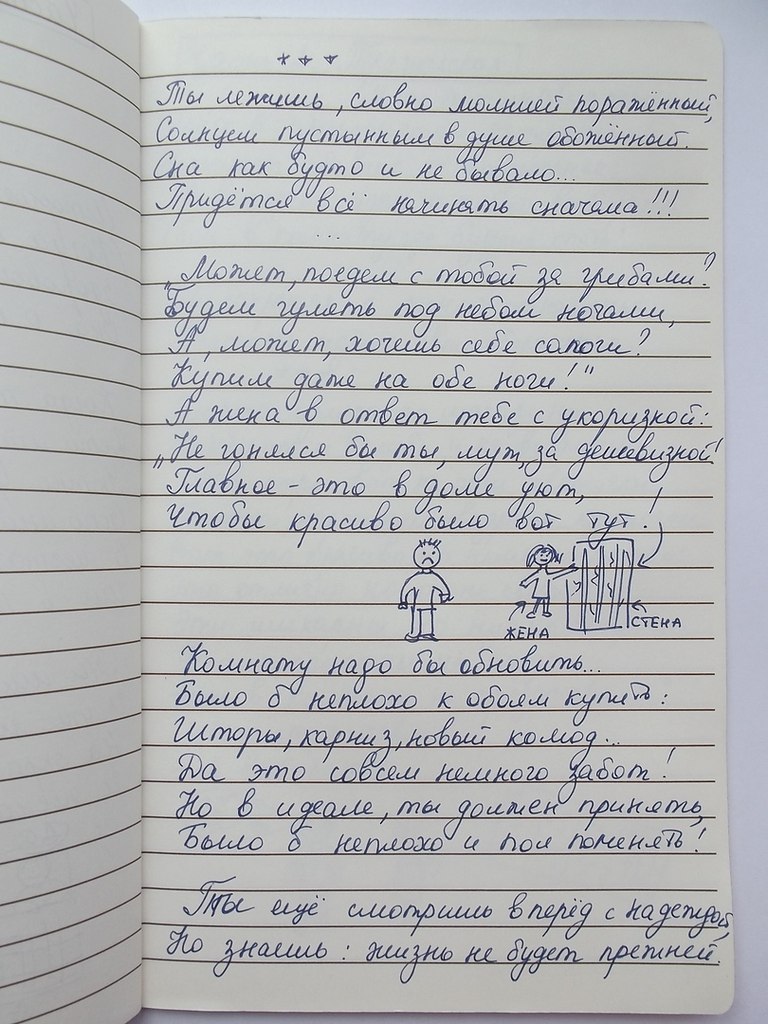 * * *
Ты лежишь, словно молнией поражённый,
Солнцем пустынным в душе обожённый.
Сна как будто и не бывало...
Придётся всё начинать сначала!!!
...
„Может, поедем с тобой за грибами?
Будем гулять под небом ночами,
А, может, хочешь себе сапоги?
Купим даже на обе ноги!"
А жена в ответ тебе с укоризной:
„Не гонялся бы ты, муж, за дешевизной!
Главное - это в доме уют,
Чтобы красиво было вот тут!
ЖЕНА
СТЕНА
Комнату надо бы обновить...
Было б неплохо к обоям купить:
Шторы, карниз, новый комод...
Да это совсем немного забот!
Но в идеале, ты должен принять,
Было б неплохо и пол поменять!
Ты ещё смотришь вперёд с надеждой,
Но знаешь: жизнь не будет прежней.